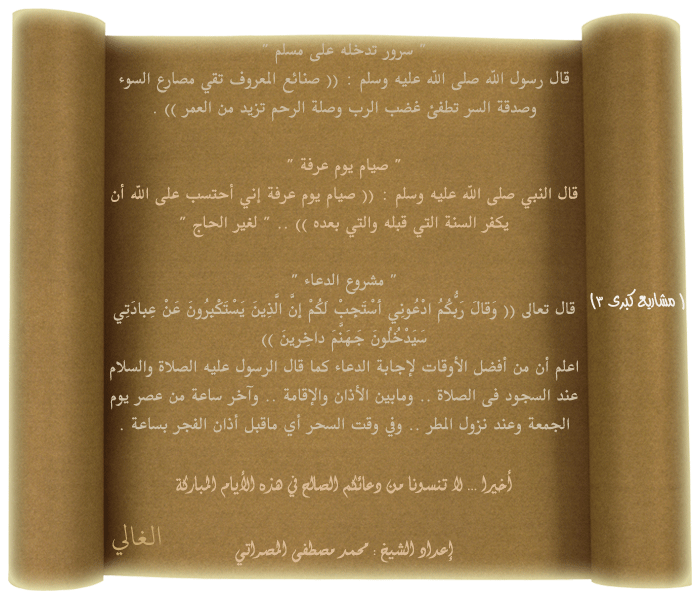 " سرور تدخله على مسلم "
قال رسول الله صلى الله عليه وسلم : (( صنائع المعروف تقي مصارع السوء
وصدقة السر تطفئ غضب الرب وصلة الرحم تزيد من العمر )) .
" صيام يوم عرفة "
قال النبي صلى الله عليه وسلم : (( صيام يوم عرفة إني أحتسب على الله أن
يكفر السنة التي قبله والتي بعده )) .. " لغير الحاج "
" مشروع الدعاء "
( مشاريع كبرى ٣)
قال تعالى (( وَقالَ رَبُّكُمُ ادْعُونِي أَسْتَجِبْ لَكُمْ إنَّ الَّذِينَ يَسْتَكْبِرُونَ عَنْ عِبادَتِي
سَيَدْخُلُونَ جَهَنَّمَ داخِرينَ ))
اعلم أن من أفضل الأوقات لإجابة الدعاء كما قال الرسول عليه الصلاة والسلام
عند السجود فى الصلاة .. ومابين الأذان والإقامة .. وآخر ساعة من عصر يوم
الجمعة وعند نزول المطر .. وفي وقت السحر أي ماقبل أذان الفجر بساعة .
أخيرا ... لا تنسونا من دعائكم الصالح في هذه الأيام المباركة
إعداد الشيخ : محمد مصطفى المصراتي
الغالي